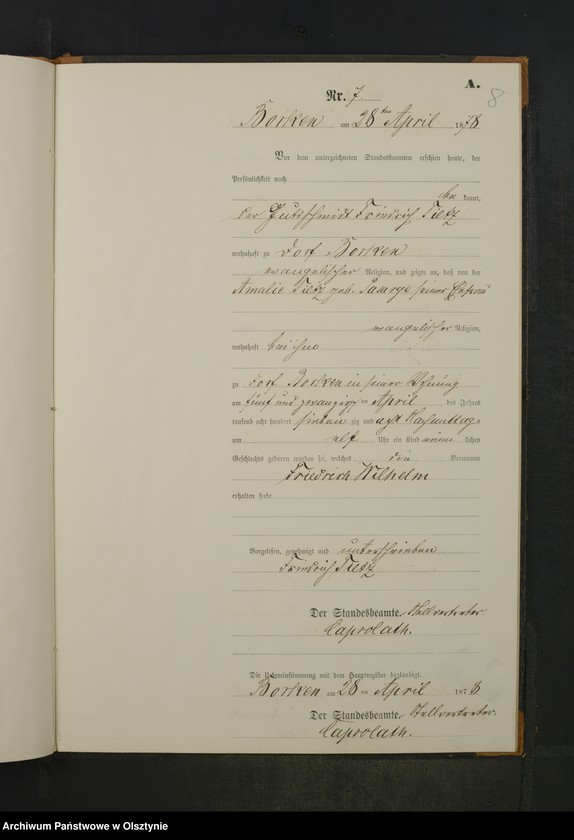 A.
8
Nr. 7.
Borken am 28ten April 1878
Vor dem unterzeichneten Standesbeamten erschien heute, der
Persönlichkeit nach
be kannt,
der Gutsschmidt Friedrich Tietz
wohnhaft zu Dorf Borken
evangelischer Religion, und zeigte an, daß von der
Amalie Tietz geb. Passarge seiner Ehefrau
evangelischer Religion,
wohnhaft bei ihm
zu Dorf Borken in seiner Wohnung
am fünf und zwanzigsten April des Jahres
tausend acht hundert sieben zig und acht Nachmittags
um elf Uhr ein Kind männ lichen
Geschlechts geboren worden sei, welches die Vornamen
Friedrich Wilhelm
erhalten habe
Vorgelesen, genehmigt und unterschrieben
Friedrich Tietz
Der Standesbeamte. Stellvertreter.
Caprolath.
Die Uebereinstimmung mit dem Hauptregister beglaubigt.
Borken am 28 ten April 1878
Der Standesbeamte. Stellvertreter.
Caprolath.
Archiwum Państwowe w Olsztynie